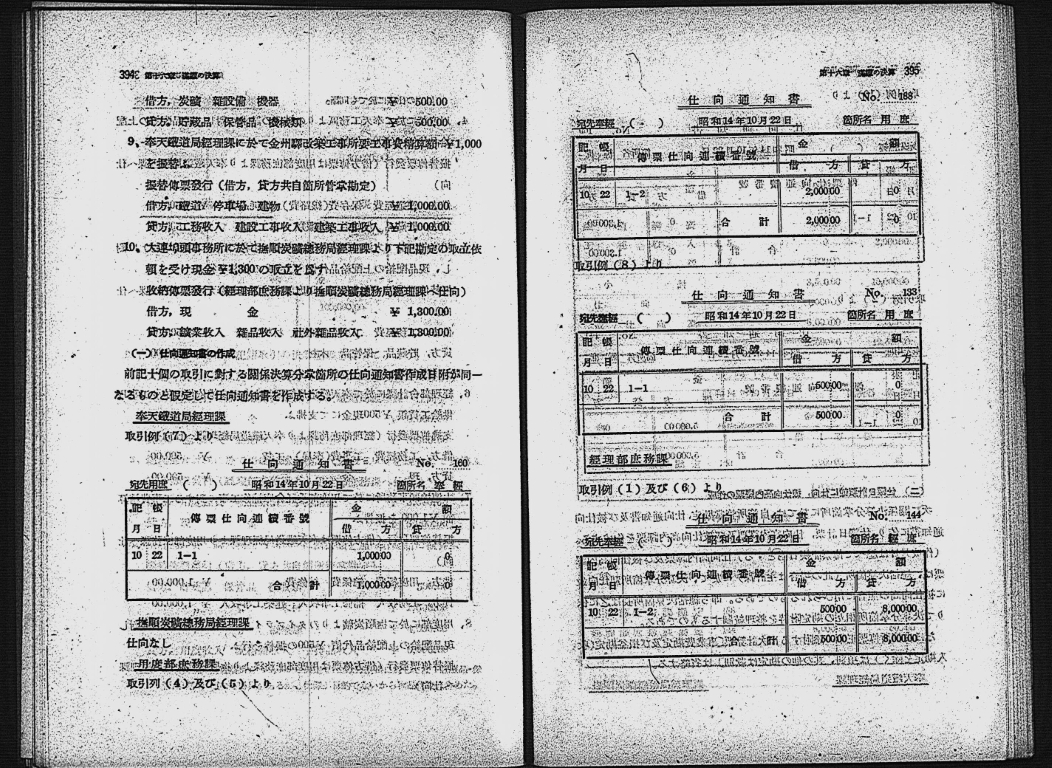 394 第十六章 滿鐵の決算
借方, 炭礦 雜設備 機器 ¥ 500.00
貸方, 貯藏品 保管品 機械類 ¥ 500.00
9、奉天鐵道局經理課に於て金州驛改築工事所要工事費精算額 ¥1,000
を振替し
振替傳票發行(借方, 貸方共自箇所管掌勘定)
借方, 鐵道 停車場 建物 ¥ 1,000.00
貸方, 工務收入 建設工事收入 建築工事收入 ¥ 1,000.00
10、大連埠頭事務所に於て撫順炭礦總務局經理課より下記勘定の取立依
賴を受け現金 ¥1,300 の取立を爲す
收納傳票發行(經理部庶務課より撫順炭礦總務局經理課へ仕向)
借方, 現 金 ¥ 1,300.00
貸方, 鑛業收入 雜品收入 社外雜品收入 ¥ 1,300.00
(一) 仕向通知書の作成
前記十個の取引に對する關係決算分掌箇所の仕向通知書作成日附が同一
なるものと假定して仕向通知書を作成する。
奉天鐵道局經理課
取引例(7)より
仕向通知書 No. 160
宛先用度 ( ) 昭和14年10月22日 箇所名 奉 經
記帳 傳票仕向通續番號 金額
月 日 借方 貸方
10 22 1-1 1,000 00 0
合計 1,000 00 0
撫順炭礦總務局經理課
仕向なし
用度部庶務課
取引列(4)及び(5)より
第十六章 滿鐵の決算 395
仕向通知書 No. 188
宛先奉經 ( ) 昭和14年10月22日 箇所名 用 度
記帳 傳票仕向通續番號 金額
月 日 借方 貸方
10 22 1-2 2,000 00 0
合計 2,000 00 0
取引例(8)より
仕向通知書 No. 133
宛先撫經 ( ) 昭和14年10月22日 箇所名 用 度
記帳 傳票仕向通續番號 金額
月 日 借方 貸方
10 22 1-1 500 00 0
合計 500 00 0
經理部庶務課
取引例(1)及び(6)より
仕向通知書 No. 144
宛先奉經 ( ) 昭和14年10月22日 箇所名 經 庶
記帳 傳票仕向通續番號 金額
月 日 借方 貸方
10 22 1-2 500 00 8,000 00
合計 500 00 8,000 00